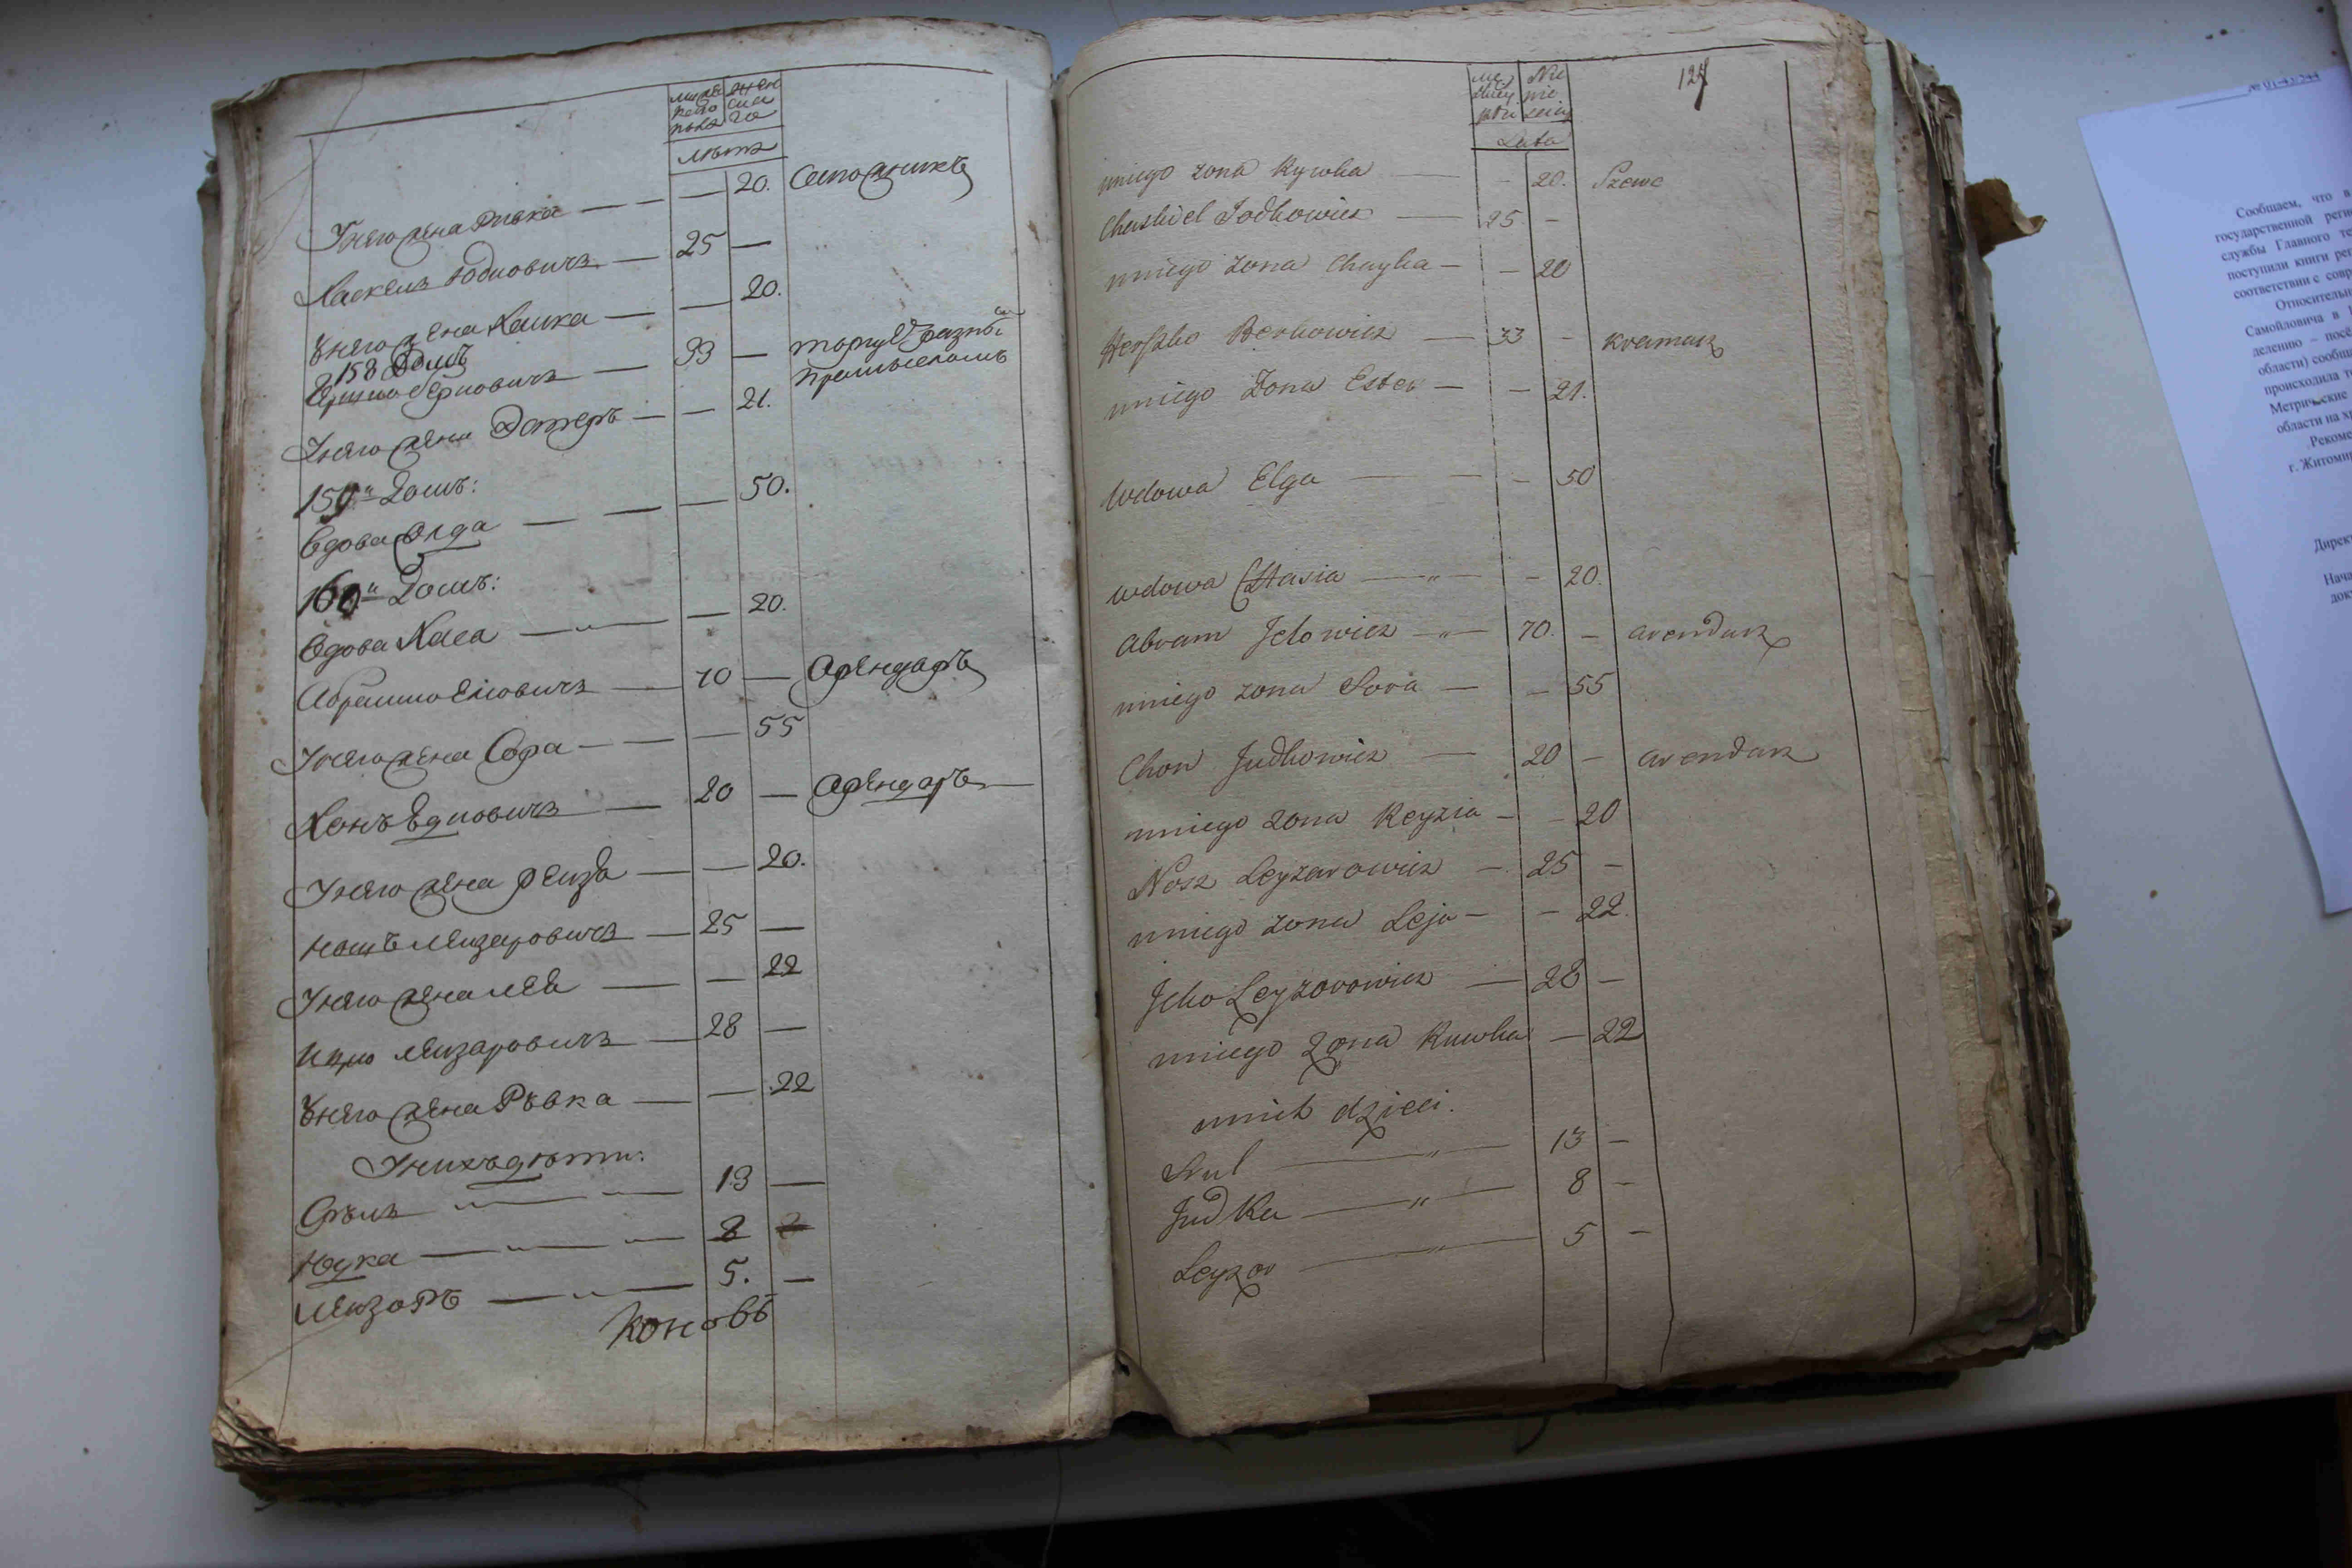 мужеска пола
женска го
лѣта
У него жена Ривка — — — 20. Сапожникъ
Хаскель Юдковичъ — 25 —
У него жена Хаика — — 20.
158 Домъ
Гершко Берковичъ — 33 — торгуетъ разны
промысломъ
У него жена Эстеръ — — 21.
159й Домъ:
Вдова Элга — — — 50.
160й Домъ:
Вдова Хася — — 20.
Абрамко Елиовичъ — 70 — Арендаръ
У него жена Сора — — — 55
Хонъ Юдковичъ — 20 — Арендаръ
У него жена Реизя — — 20.
Ношъ Леизаровичъ — 25 —
У него жена Лея — — 22
Ицко Леизаровичъ — 28 —
У него жена Рывка — — 22
У нихъ дѣти:
Сруль — " — " — 13 —
Юдка — " — " — 8
Леизоръ — " — 5. —
Коновъ
124
Męz kiey płci
Nie wie sciey
Lata
uniego zona Rywka — - 20. Szewc
Chaskiel Jodkowicz — 25 -
uniego zona Chayka — - 20
Herszko Berkowicz — 33 - kramarz
uniego Zona Ester — - 21.
Wdowa Elga — - 50
wdowa Chasia — " — - 20.
Abram Jelowicz — " — 70. - arendarz
uniego zona Sora — - 55
Chon Judkowicz — 20 - arendarz
uniego zona Reyzia - - 20
Nosz Leyzarowicz - 25 -
uniego zona Leja - - 22.
Jcko Leyzorowicz — 28 -
uniego zona Ruwka — 22
unich dzieci.
Srul — " — 13 -
Judka — " — 8 -
Leyzor — " — 5 -
№ 01-43/344
Сообщаем, что в
государственной реги
службы Главного те
поступили книги рег
соответствии с совр
Относительн
Самойловича в
делению – посё
области) сообщ
происходила т
Метрические
области на хр
Рекоме
г. Житомир
Дирек
Нача
док